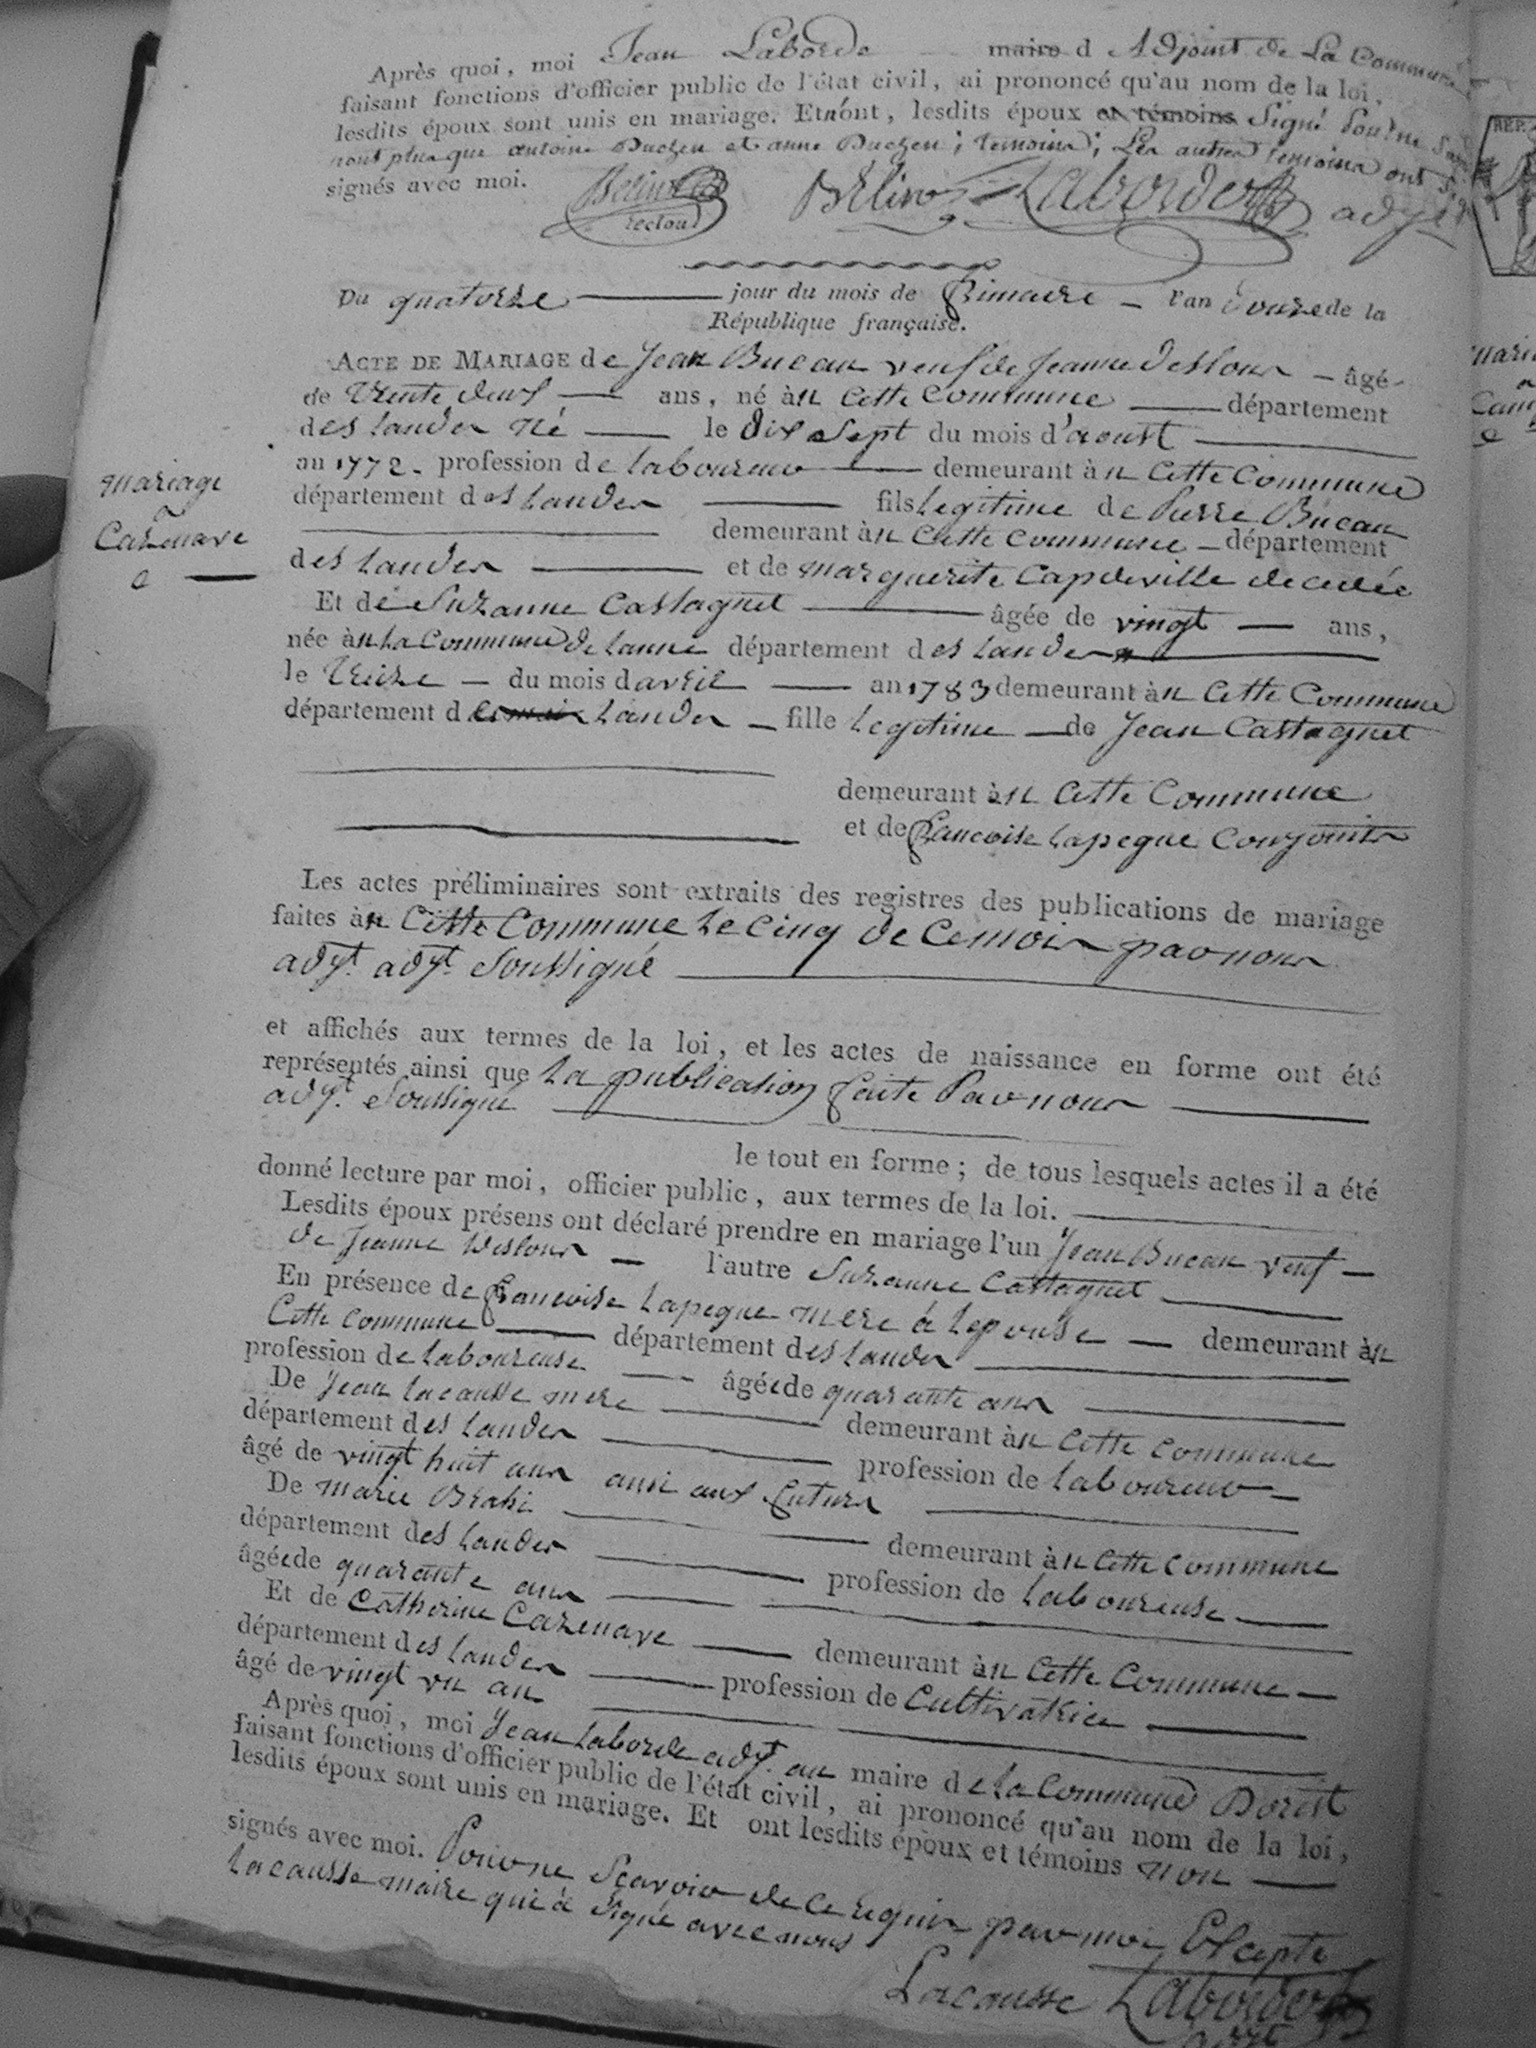 Après quoi, moi Jean Laborde maire d Adjoint de La Commune
faisant fonctions d'officier public de l'état civil, ai prononcé qu'au nom de la loi,
lesdits époux sont unis en mariage. Et nont, lesdits époux et témoins Signé pour ne
non plus que antoine Duchen et anne Duchen; temoins; Les autres temoins ont
signés avec moi.
Laborde adjt
Du quatorze jour du mois de frimaire l'an douze de la
République française.
ACTE DE MARIAGE de Jean Bucau veuf de Jeanne Deslous âgé
de Trente deux ans, né àn cette Commune département
des landes né le dix sept du mois d'aoust
an 1772. profession de laboureur demeurant àn cette Commune
mariage
département des landes fils legitime de Pierre Bucau
a
Cazenave
demeurant àn cette commune département
e
des landes et de marguerite Capdeville decedée
Et de Suzanne Castagnet âgée de vingt ans,
née àn la Commune de lanne département des landes
le Treize du mois davril an 1783 demeurant àn cette Commune
département d landes fille legitime de Jean Castagnet
demeurant àn cette Commune
et de francoise lapegue Conjoints
Les actes préliminaires sont extraits des registres des publications de mariage
faites àn cette Commune le cinq de ce mois par nous
adjt. adjt. Soussigné
et affichés aux termes de la loi, et les actes de naissance en forme ont été
représentés ainsi que la publication faite Par nous
adjt. Soussigné
le tout en forme; de tous lesquels actes il a été
donné lecture par moi, officier public, aux termes de la loi.
Lesdits époux présens ont déclaré prendre en mariage l'un Jean Bucau veuf
de Jeanne Deslous l'autre Suzanne Castagnet
En présence de francoise lapegue mere á lepouse demeurant àn
Cette commune département des landes
profession de laboureuse âgée de quarante ans
De Jean lacausse mere demeurant àn cette commune
département des landes profession de laboureur
âgé de vingt huit ans ami aux futurs
De marie Brahi demeurant àn cette commune
département des landes profession de laboureuse
âgée de quarante ans
Et de Catherine Cazenave demeurant àn cette Commune
département des landes profession de Cultivatrice
âgé de vingt un an
Après quoi, moi Jean laborde adjt. au maire de la Commune Dorist
faisant fonctions d'officier public de l'état civil, ai prononcé qu'au nom de la loi,
lesdits époux sont unis en mariage. Et ont lesdits époux et témoins non
signés avec moi. Pour ne Scavoir de ce requis par moi Excepte
lacausse maire qui à Signé avec nous
Lacausse Laborde
adjt